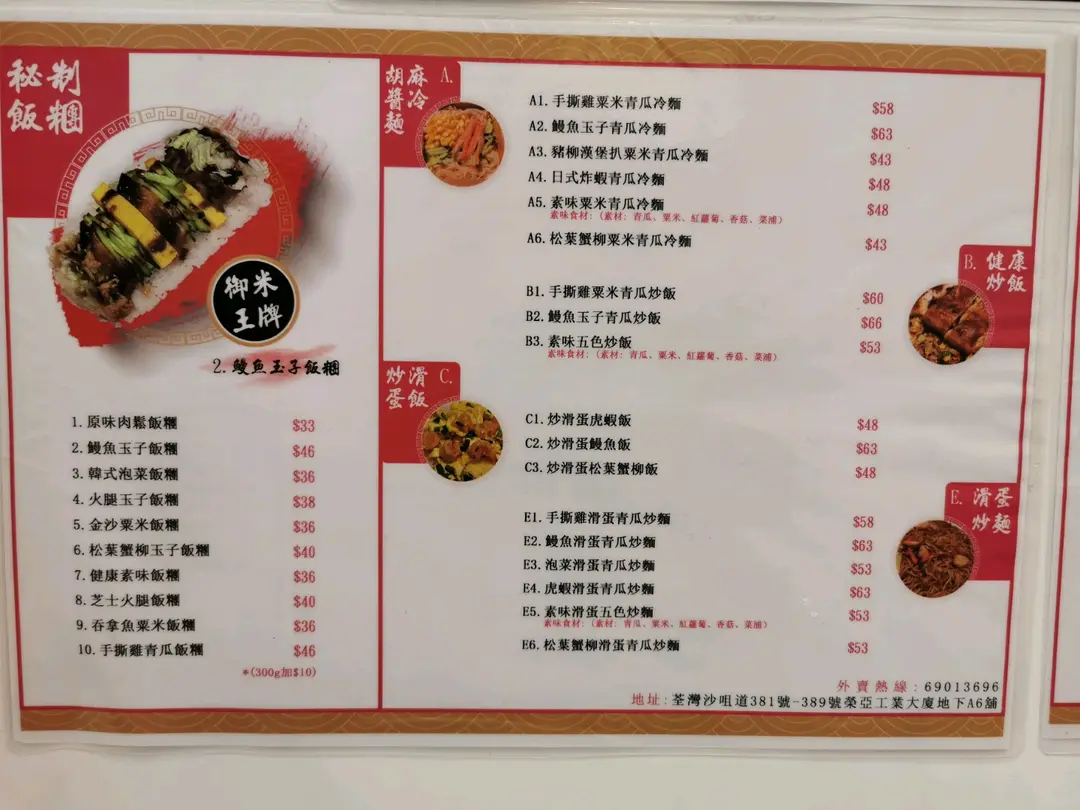 秘制
飯糰
御米
王牌
2.鰻魚玉子飯糰
1.原味肉鬆飯糰 $33
2.鰻魚玉子飯糰 $46
3.韓式泡菜飯糰 $36
4.火腿玉子飯糰 $38
5.金沙粟米飯糰 $36
6.松葉蟹柳玉子飯糰 $40
7.健康素味飯糰 $36
8.芝士火腿飯糰 $40
9.吞拿魚粟米飯糰 $36
10.手撕雞青瓜飯糰 $46
*(300g加$10)
A.
胡麻
醬冷
麵
A1.手撕雞粟米青瓜冷麵 $58
A2.鰻魚玉子青瓜冷麵 $63
A3.豬柳漢堡扒粟米青瓜冷麵 $43
A4.日式炸蝦青瓜冷麵 $48
A5.素味粟米青瓜冷麵 $48
素味食材:(素材:青瓜、粟米、紅蘿蔔、香菇、菜浦)
A6.松葉蟹柳粟米青瓜冷麵 $43
B.健康
炒飯
B1.手撕雞粟米青瓜炒飯 $60
B2.鰻魚玉子青瓜炒飯 $66
B3.素味五色炒飯 $53
素味食材:(素材:青瓜、粟米、紅蘿蔔、香菇、菜浦)
炒滑 C.
蛋飯
C1.炒滑蛋虎蝦飯 $48
C2.炒滑蛋鰻魚飯 $63
C3.炒滑蛋松葉蟹柳飯 $48
E.滑蛋
炒麵
E1.手撕雞滑蛋青瓜炒麵 $58
E2.鰻魚滑蛋青瓜炒麵 $63
E3.泡菜滑蛋青瓜炒麵 $53
E4.虎蝦滑蛋青瓜炒麵 $63
E5.素味滑蛋五色炒麵 $53
素味食材:(素材:青瓜、粟米、紅蘿蔔、香菇、菜浦)
E6.松葉蟹柳滑蛋青瓜炒麵 $53
外賣熱線:69013696
地址:荃灣沙咀道381號-389號榮亞工業大廈地下A6舖